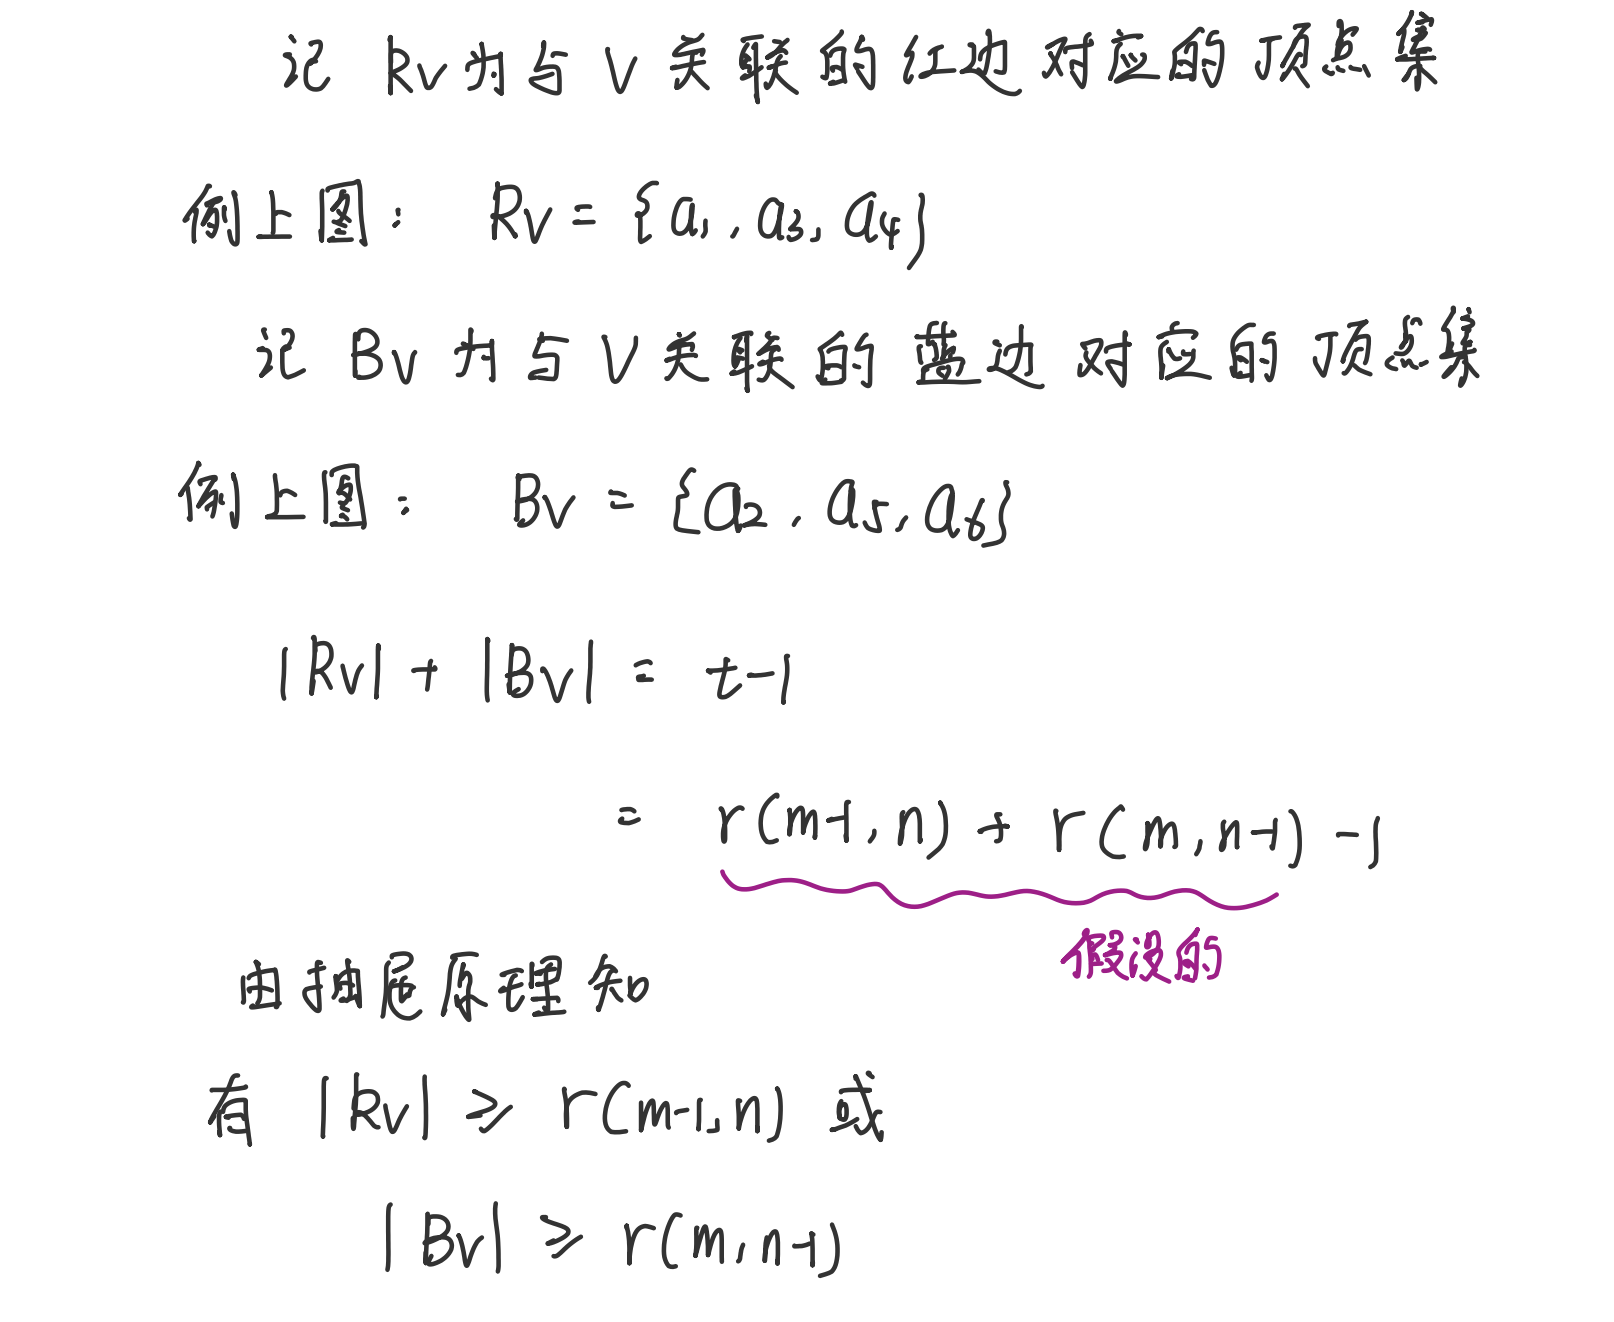 记 Rv为与 V 关联的红边对应的顶点集
例上图： Rv = {a₁, a₃, a₄}
记 Bv 为与 V 关联的蓝边对应的顶点集
例上图： Bv = {a₂, a₅, a₆}
|Rv| + |Bv| = t-1
= r(m-1, n) + r(m, n-1) -1
假设的
由抽屉原理知
有 |Rv| ⩾ r(m-1, n) 或
|Bv| ⩾ r(m, n-1)